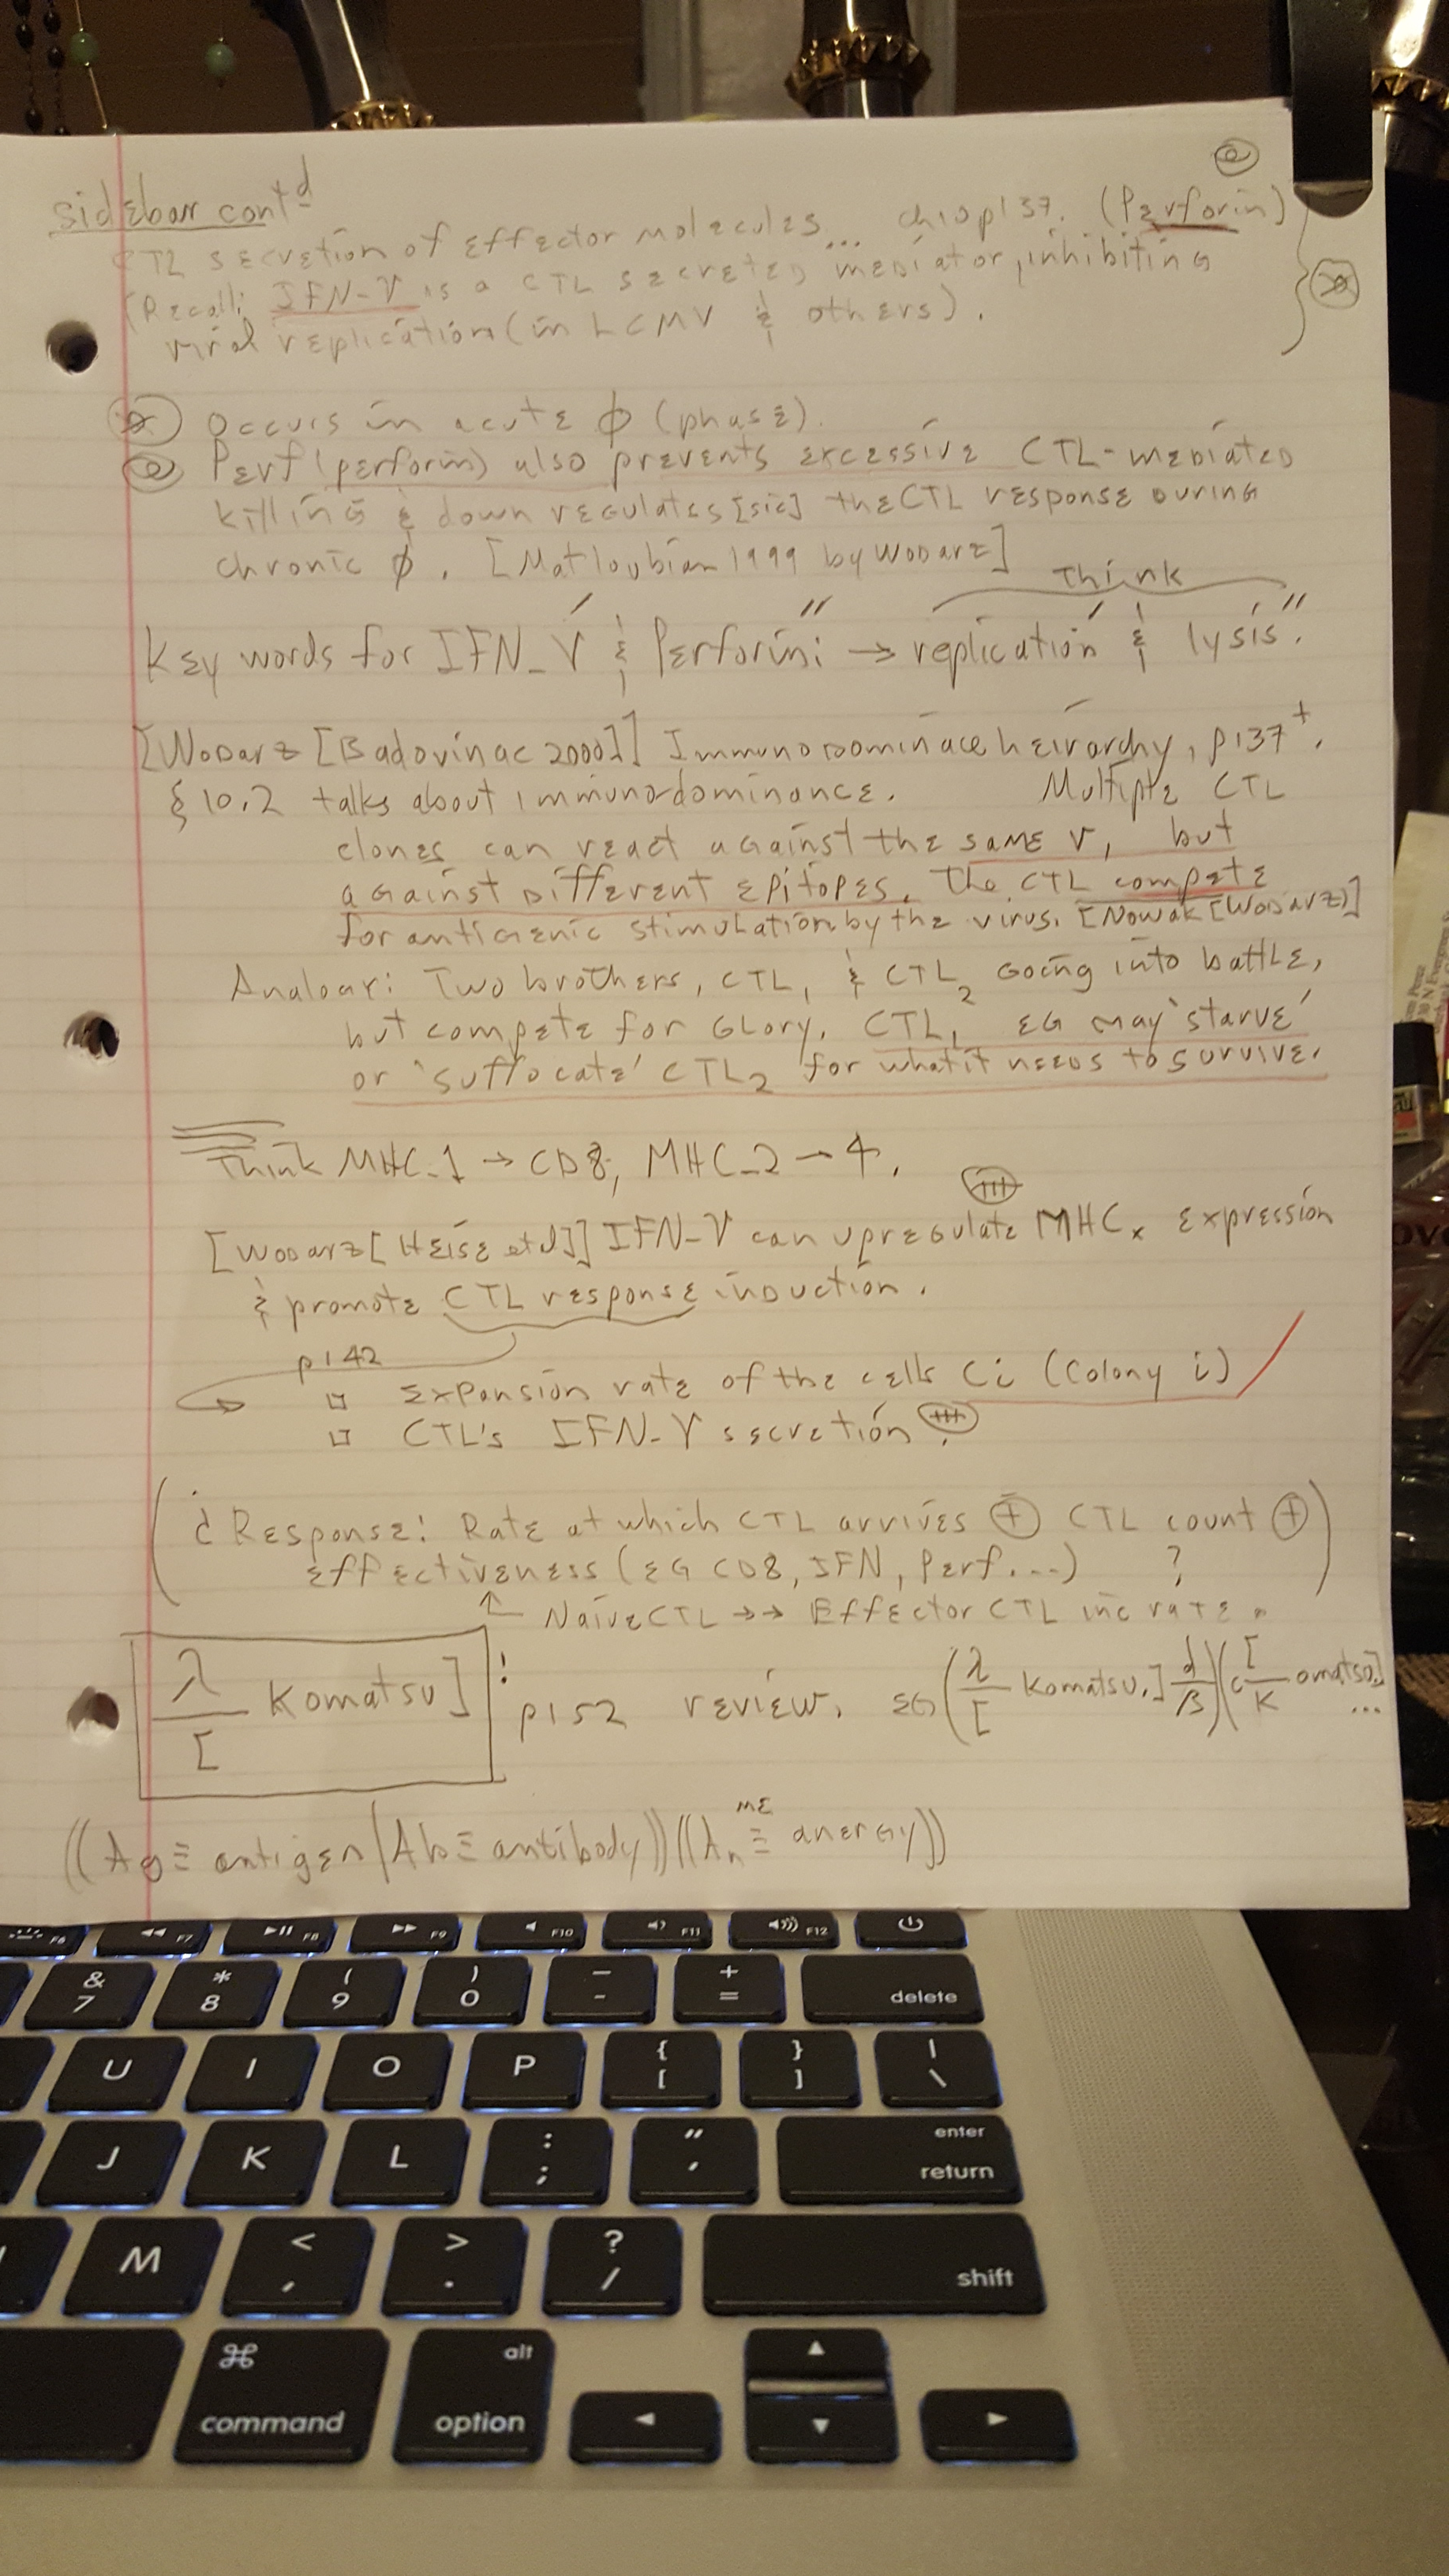 sidebar cont'd
CTL secretion of effector molecules... ch10p137. (Perforin)
(Recall: IFN-γ is a CTL secreted mediator, inhibiting
viral replication (in LCMV & others).
Occurs in acute φ (phase).
Perf (perforin) also prevents excessive CTL-mediated
killing & down regulates [sic] the CTL response during
chronic φ. [Matloubian 1999 by Wodarz]
Think
Key words for IFN-γ' & Perforin": → replication' & lysis."
[Wodarz [Badovinac 2000]] Immunodominace heirarchy, p137+.
§10.2 talks about immunodominance. Multiple CTL
clones can react against the same v, but
against different epitopes. The CTL compete
for antigenic stimulation by the virus. [Nowak [Wodarz)]
Analogy: Two brothers, CTL1 & CTL2 going into battle,
but compete for glory. CTL1 EG may 'starve'
or 'suffocate' CTL2 for what it needs to survive.
Think MHC-1 → CD8, MHC-2 → 4.
[Wodarz [Heise et al]] IFN-γ can upregulate MHCx expression
& promote CTL response induction.
p142
□ Expansion rate of the cells Ci (Colony i)
□ CTL's IFN-γ secretion.
(¿Response: Rate at which CTL arrives ⊕ CTL count ⊕
effectiveness (EG CD8, IFN, Perf...) ?)
↑ Naive CTL →→ Effector CTL inc rate.
λ/[ Komatsu] : p152 review. EG (λ/[ Komatsu.] d/β)(c[/K omatsu.] ...
me
((Ag ≡ antigen | Ab ≡ antibody))((An ≡ anergy))
F6 F7 F8 F9 F10 F11 F12
& 7 * 8 ( 9 ) 0 _ - + = delete
U I O P { [ } ] | \
J K L : ; " ' enter return
M < , > . ? / shift
⌘ command alt option